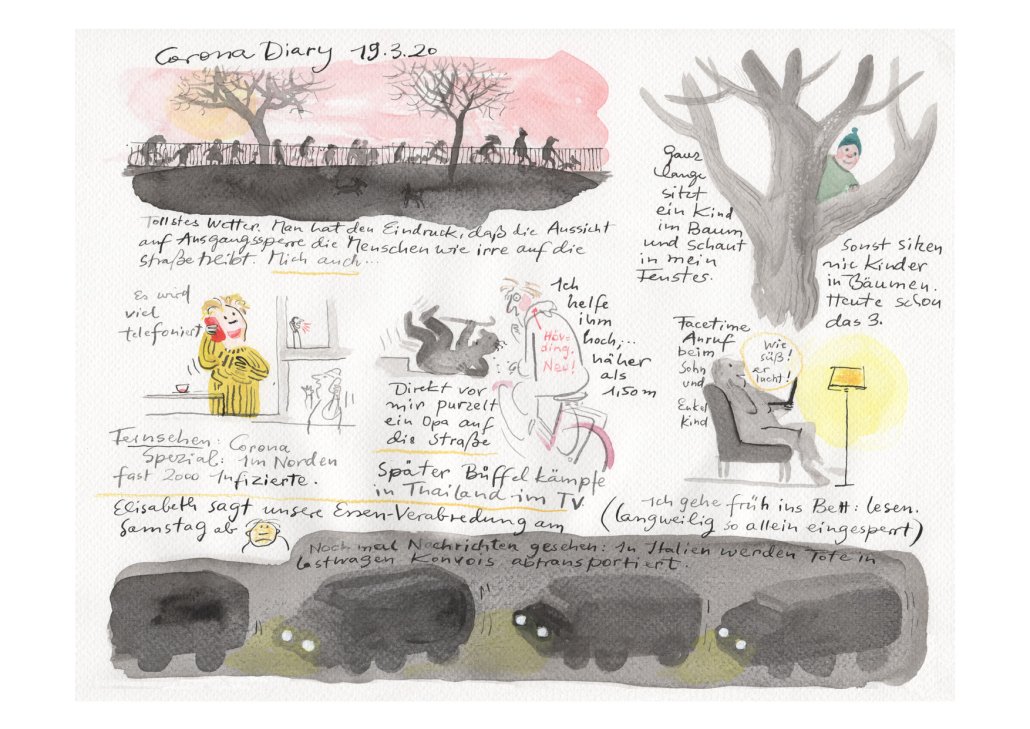 Corona Diary 19.3.20
Tollstes Wetter. Man hat den Eindruck, daß die Aussicht
auf Ausgangssperre die Menschen wie irre auf die
Straße treibt. Mich auch...
Ganz
lange
sitzt
ein Kind
im Baum
und schaut
in mein
Fenster.
Sonst sitzen
nie Kinder
in Bäumen.
Heute schon
das 3.
Es wird
viel
telefoniert
Direkt vor
mir purzelt
ein Opa auf
die Straße
Ich
helfe
ihm
hoch,...
näher
als
1,50m
Höv-
ding.
Neu!
Facetime
Anruf
beim
Sohn
und
Enkel
Kind
Wie
süß!
er
lacht!
Fernsehen: Corona
Spezial: Im Norden
fast 2000 Infizierte.
Später Büffelkämpfe
in Thailand im TV.
Elisabeth sagt unsere Essen-Verabredung am
Samstag ab
Ich gehe früh ins Bett: lesen.
(langweilig so allein eingesperrt)
Noch mal Nachrichten gesehen: In Italien werden Tote in
Lastwagen Konvois abtransportiert.